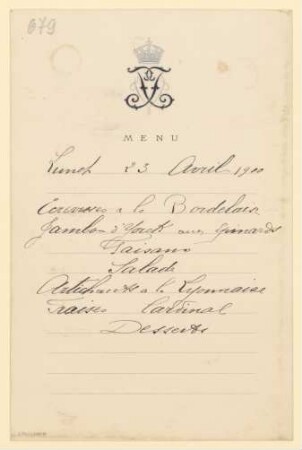 679
MENU
Lunch 23 Avril 1900
Ecrevisses a la Bordelaise
Jambon d'York aux épinards
Faisans
Salade
Artichauts a la Lyonnaise
Fraises Cardinal
Desserts